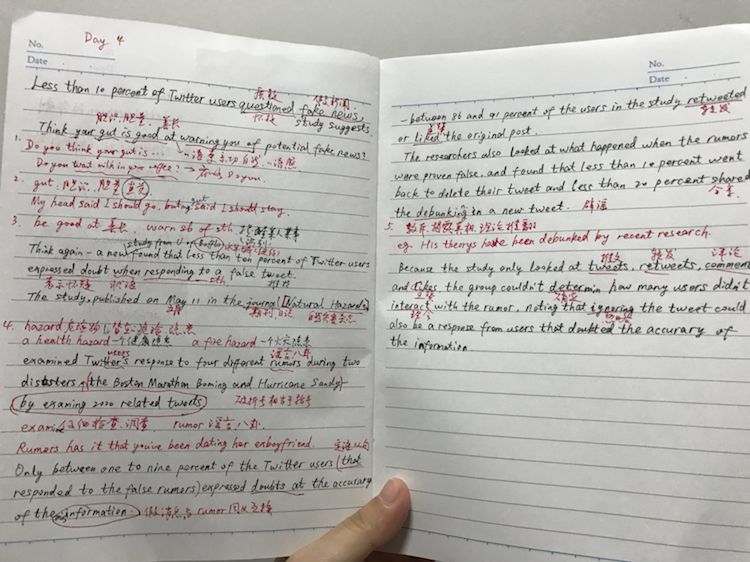 Day 4
No.
Date
Less than 10 percent of Twitter users questioned fake news,
study suggests.
Think your gut is good at warning you of potential fake news?
1. Do you think your gut is ...
Do you want milk in your coffee? → Do you.
2. gut: 胆识, 胆量, 直觉
My head said I should go, but my gut said I should stay.
3. be good at 善长, warn sb of sth
study from U of Buffalo
Think again - a new found that less than ten percent of Twitter users
expressed doubt when responding to a false tweet.
The study, published on May 11 in the journal (Natural Hazards)
4. hazard 危险物
a health hazard 一个健康隐患 a fire hazard 一个火灾隐患
users
流言八卦
examined Twitter's response to four different rumors during two
disasters, (the Boston Marathon Boming and Hurricane Sandy)
by examing 2020 related tweets
examine 仔细检查, 调查. rumor 谣言, 八卦.
Rumors has it that youve been dating her exboyfriend.
定语从句
Only between one to nine percent of the Twitter users (that
responded to the false rumors) expressed doubts at the accuracy
of the misinformation. 假消息 与 rumor 同义互换
No.
Date
- between 86 and 91 percent of the users in the study retweeted
or liked the original post.
The researchers also looked at what happened when the rumors
were proven false, and found that less than 10 percent went
back to delete their tweet and less than 20 percent shared
分享
the debunking in a new tweet. 辟谣
5. 揭穿真相
eg. His theorys have been debunked by recent research.
推文 转发 评论
Because the study only looked at tweets, retweets, comment
and likes the group couldn't determin how many users didn't
interact with the rumor, noting that ignoring the tweet could
also be a response from users that doubted the accurary of
the information.